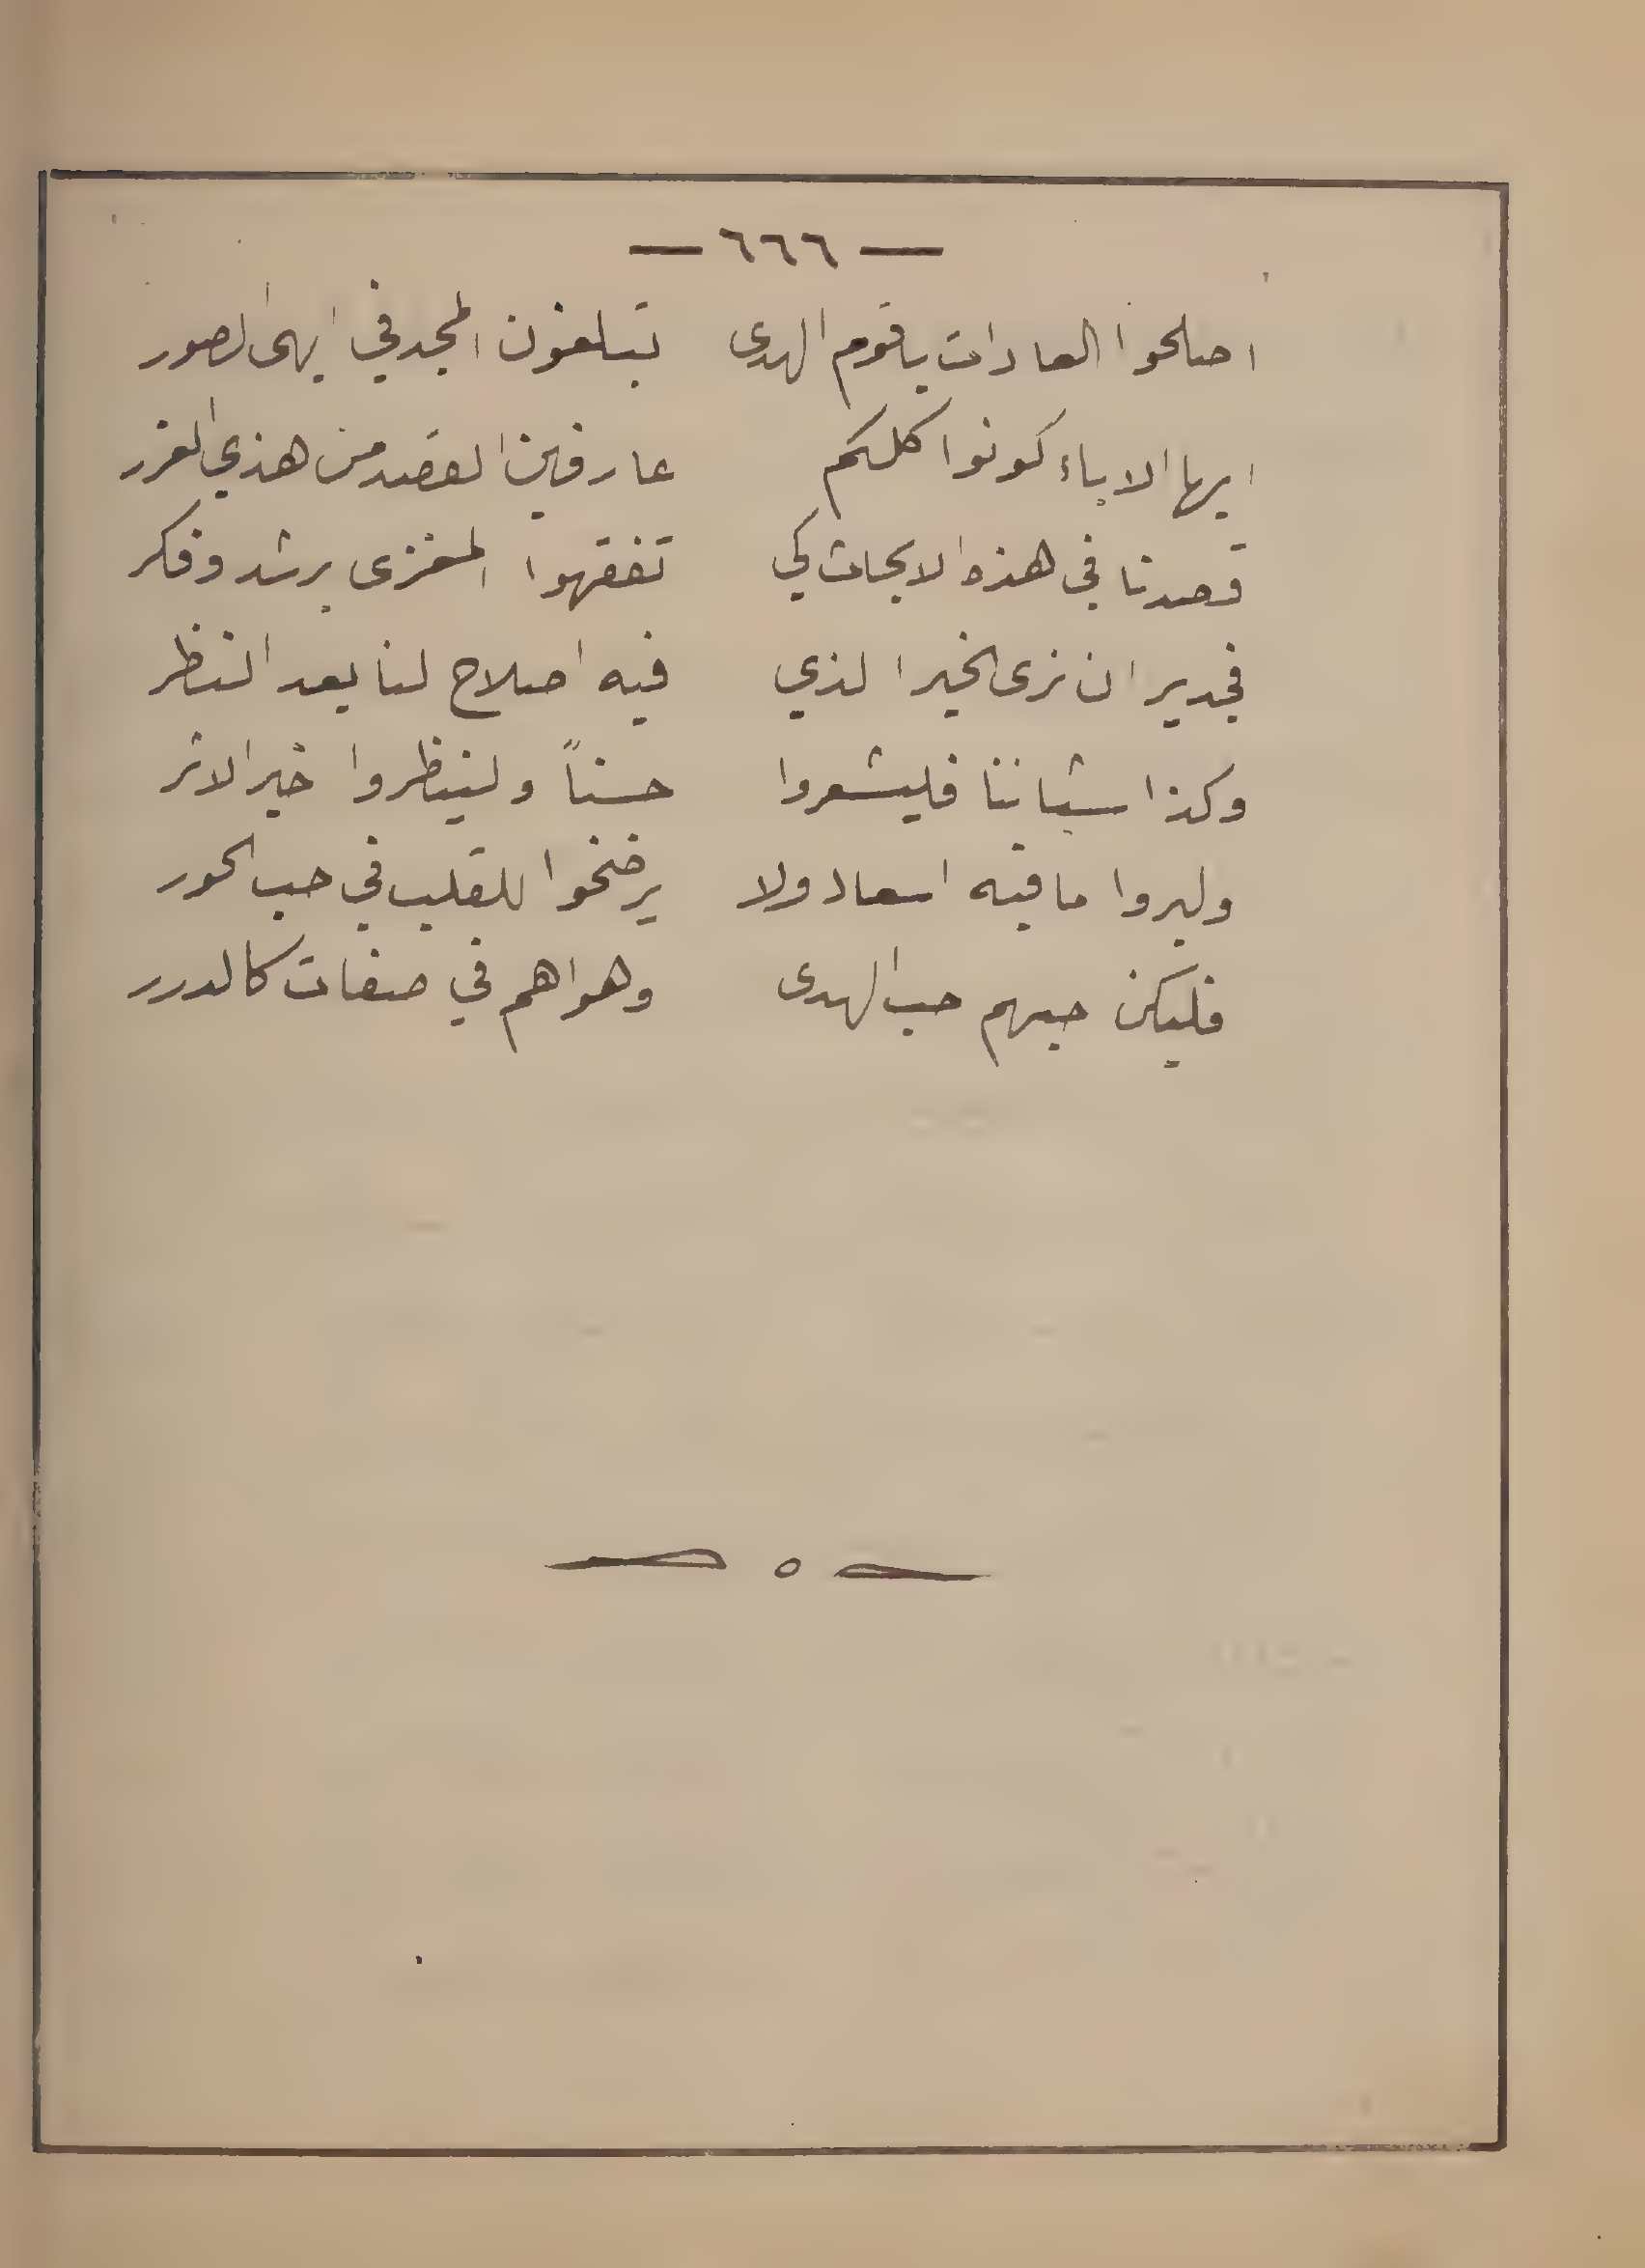 — ٦٦٦ —
اصلحوا العادات ياقوم الهدى تبلغون المجد في ابهى الصور
ايها الاباء كونوا كلكم عارفين القصد من هذي الغرر
قصدنا في هذه الابحاث كي تفقهوا المغزى برشد وفكر
فجدير ان نرى الخير الذي فيه اصلاح لنا بعد النظر
وكذا شباننا فليشعروا حسناً ولينظروا خير الاثر
وليروا مافيه اسعاد ولا يرضخوا للقلب في حب الحور
فليكن حبهم حب الهدى وهواهم في صفات كالدرر